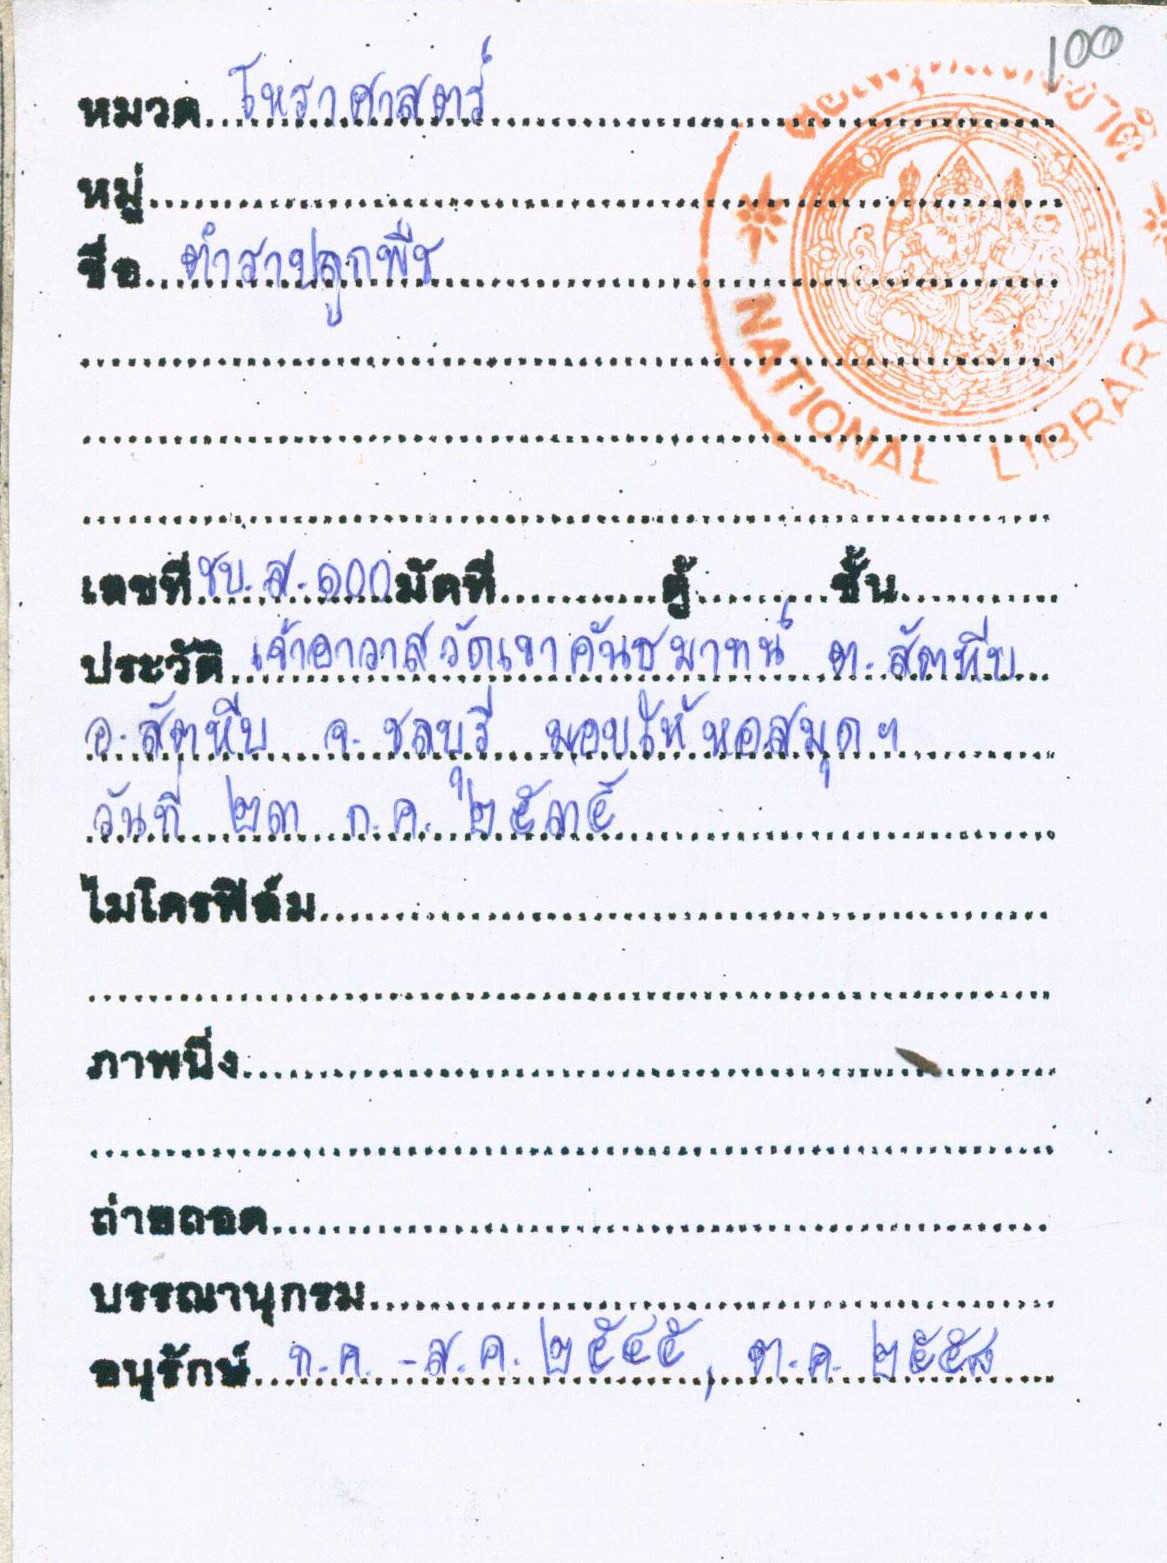 100
หมวด โหราศาสตร์
หมู่
ชื่อ ตำราปลูกพืช
หอสมุดแห่งชาติ
NATIONAL LIBRARY
เลขที่ ชบ.ส.๑๐๐ มัดที่ ตู้ ชั้น
ประวัติ เจ้าอาวาสวัดเขาคันธมาทน์ ต.สัตหีบ
อ.สัตหีบ จ.ชลบุรี มอบให้หอสมุดฯ
วันที่ ๒๓ ก.ค. ๒๕๓๕
ไมโครฟิล์ม
ภาพนิ่ง
ถ่ายถอด
บรรณานุกรม
อนุรักษ์ ก.ค. -ส.ค. ๒๕๔๕, ต.ค. ๒๕๕๘